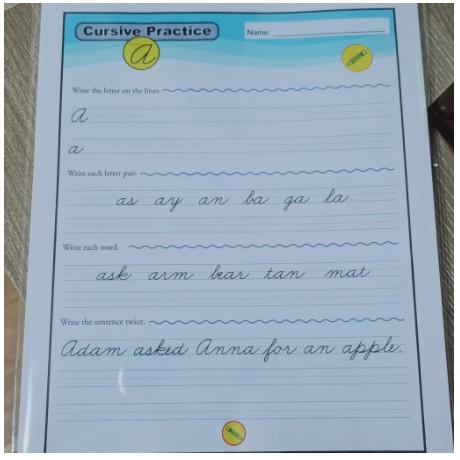 Cursive Practice
Name:
a
Write the letter on the lines.
a
a
Write each letter pair.
as ay an ba ga la
Write each word.
ask arm bear tan mat
Write the sentence twice.
Adam asked Anna for an apple.